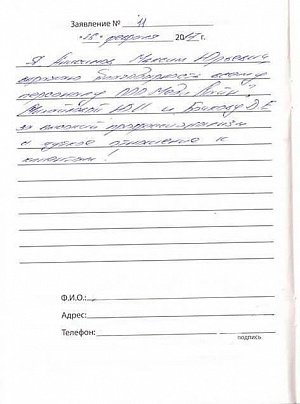 Заявление № 11
"15" февраля 2014 г.
Я Максим Юрьевич
выражаю благодарность всему
персоналу ООО "Мед Лайн",
Н.И и Е
за высокий профессионализм
и чуткое отношение к
клиентам!
Ф.И.О.:
Адрес:
Телефон:
подпись